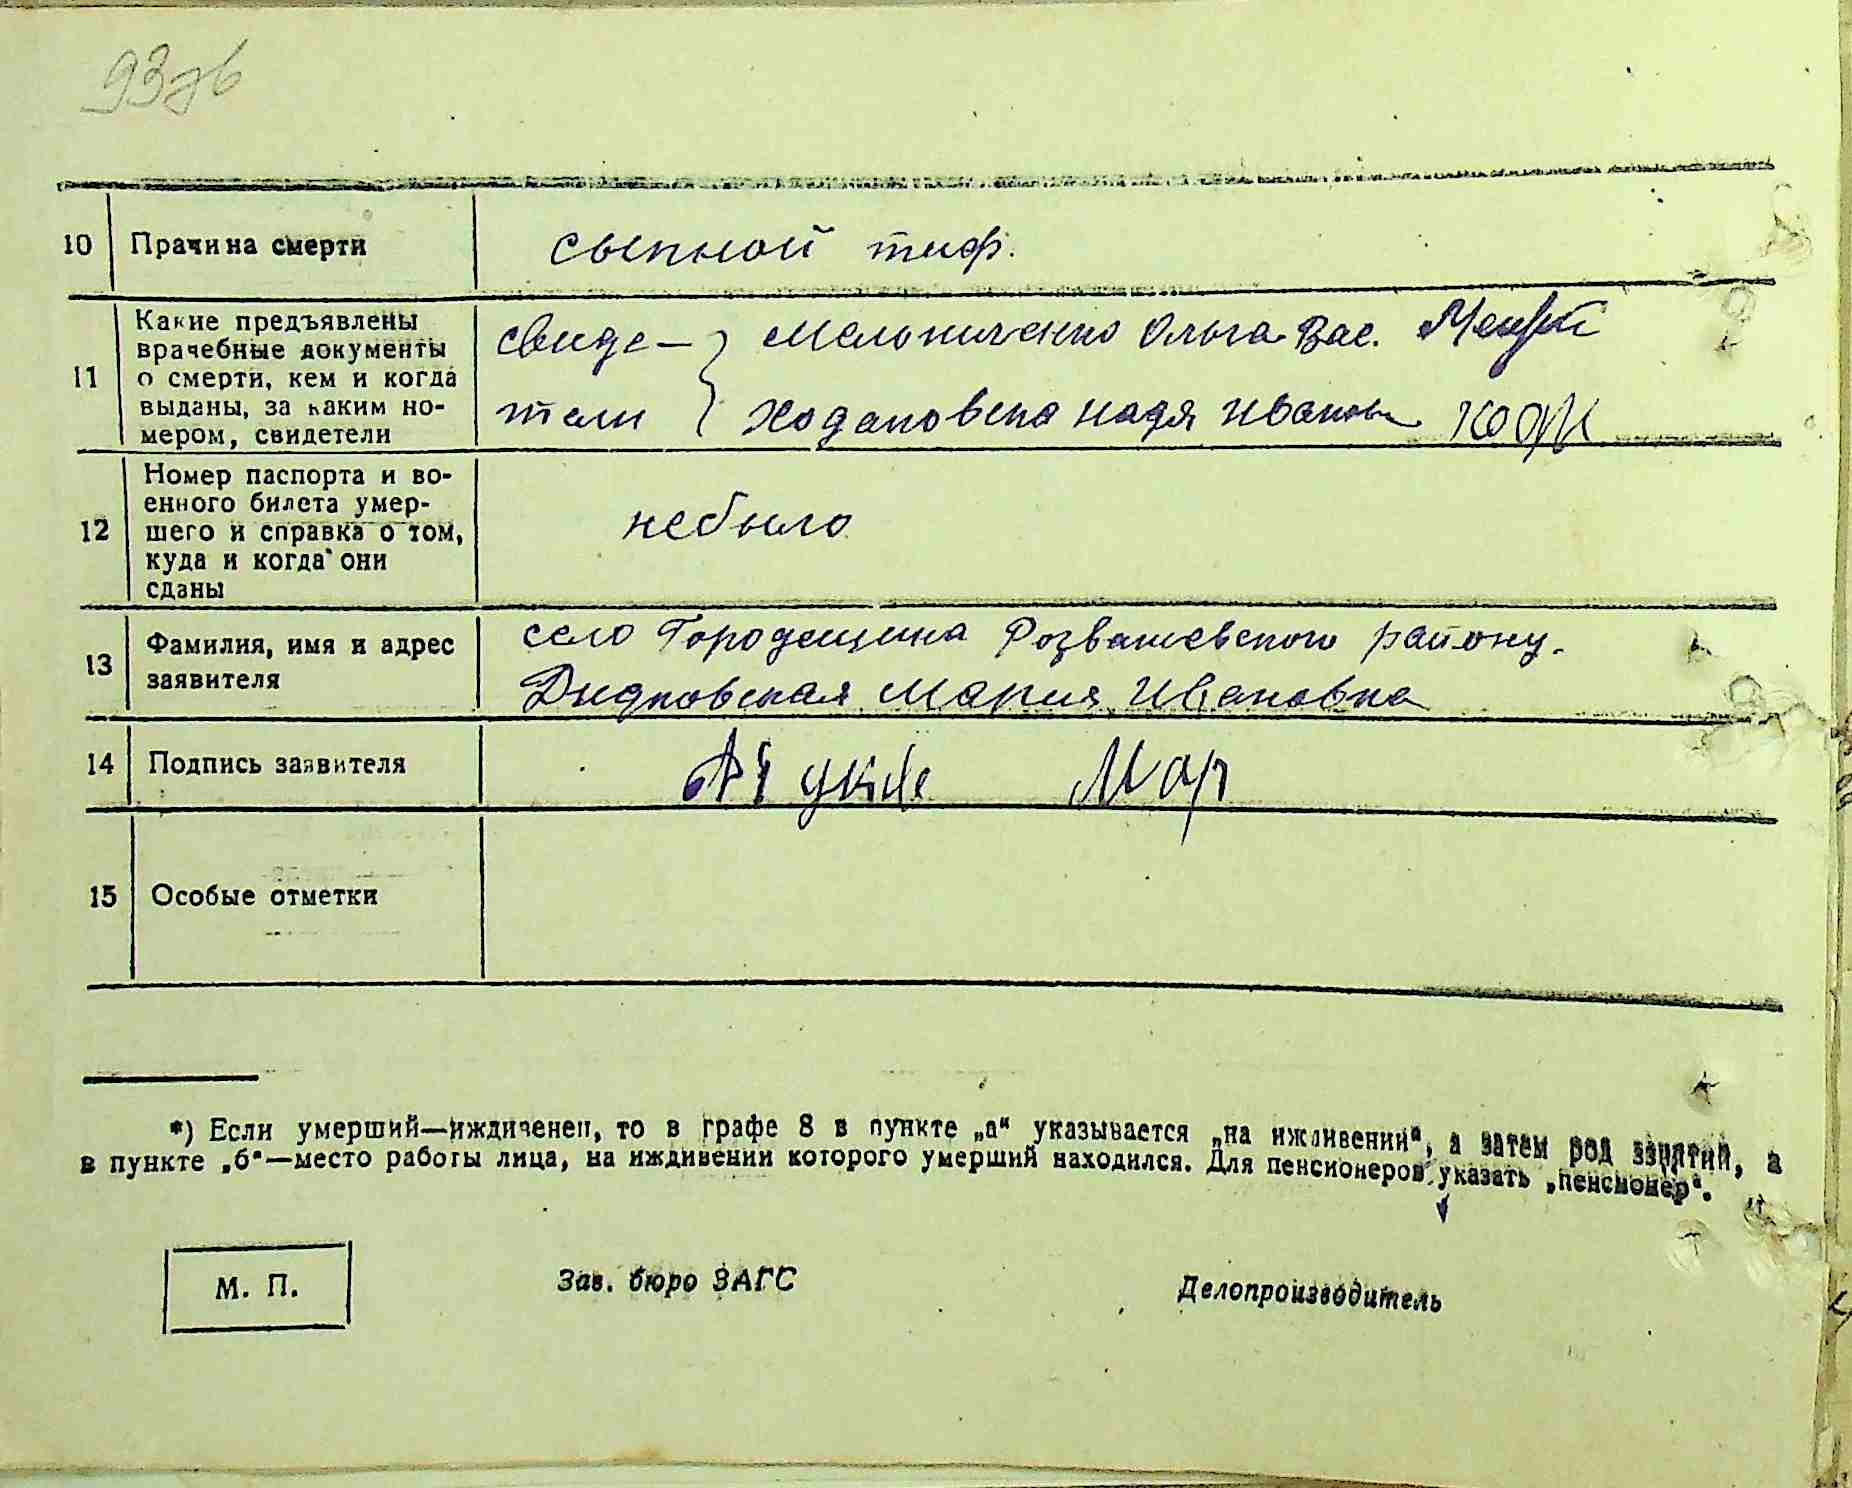 93зв
10 Прачина смерти сыпной тиф.
11 Какие предъявлены
врачебные документы
о смерти, кем и когда
выданы, за каким но-
мером, свидетели
свиде- } Мельниченко Ольга Вас.
тели } Ходаковска Надя Иванов
12 Номер паспорта и во-
енного билета умер-
шего и справка о том,
куда и когда они
сданы
небыло
13 Фамилия, имя и адрес
заявителя
село Городещина Розважевского району.
Дидковская Мария Ивановна
14 Подпись заявителя Мар
15 Особые отметки
*) Если умерший—иждивенец, то в графе 8 в пункте „а“ указывается „на иждивении“, а затем род занятий, а
в пункте „б“—место работы лица, на иждивении которого умерший находился. Для пенсионеров указать „пенсионер“.
М. П. Зав. бюро ЗАГС Делопроизводитель